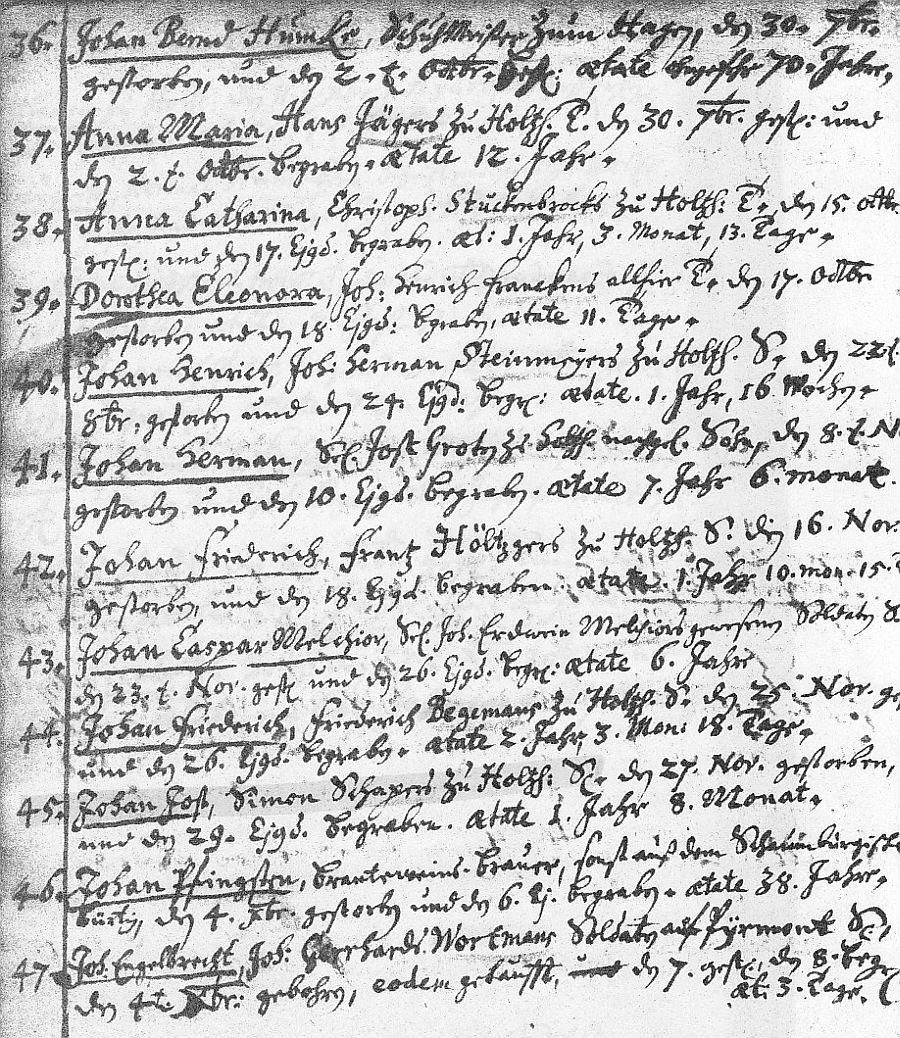 36. Johan Bernd Humke, Schuhmeister zum Hagen, den 30. 7br.
gestorben, und den 2. t. Octbr. begr: ætate 70. Jahre,
37. Anna Maria, Hans Jägers zu Holtzh. T. den 30. 7br. gest: und
den 2. t. Octbr. begraben. ætate 12. Jahr.
38. Anna Catharina, Christoph. Stuckenbrocks zu Holtzh: T. den 15. octbr.
gest: und den 17. Ejsd. begraben. æt: 1. Jahr, 3. Monat, 13. Tage.
39. Dorothea Eleonora, Joh: Henrich Franckens allhier T. den 17. octbr
gestorben und den 18. Ejsd: begraben, ætate 11. Tage.
40. Johan Henrich, Joh: Herman Steinmeyers zu Holtzh. S. den 22t.
8br. gestorben und den 24. Ejsd: begr: ætate. 1. Jahr, 16. Wochen.
41. Johan Herman, Sel. Jost Groten zu Holtzh. nachgel. Sohn, den 8. t. No
gestorben und den 10. Ejsd. begraben. ætate 7. Jahr 6. monat.
42. Johan Friederich, Frantz Höltzgers zu Holtzh. S. den 16. Nov:
gestorben, und den 18. Ejsd. begraben. ætate. 1. Jahr 10. mon. 15.
43. Johan Caspar Melchior, Sel. Joh. Erdwein Melchiors gewesenen Soldaten
den 23. t. Nov. gest und den 26. Ejsd. begr: ætate 6. Jahre
44. Johan Friederich, Friederich Begemans zu Holtzh. S. den 25. Nov. ge
und den 26. Ejsd. begraben. ætate 2. Jahr, 3. Mon: 18. Tage.
45. Johan Jost, Simon Schapers zu Holtzh: S. den 27. Nov. gestorben,
und den 29. Ejsd. begraben. ætate 1. Jahr 8. Monat.
46. Johan Pfingsten, Branteweins-brauer, sonst auß dem Schaumbürgische
bürtig, den 4. Xbr. gestorben und den 6. Ej. begraben. ætate 38. Jahre.
47. Joh. Engelbrecht, Joh: Gerhards Wortmans Soldaten auf Pyrmont S.,
den 4t. Xbr: gebohren, eodem getaufft, den 7. gest., den 8. begr
æt: 3. Tage.